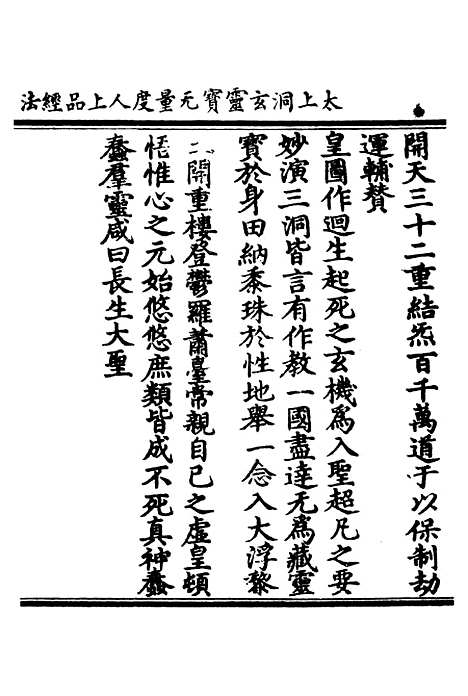 太上洞玄靈寶无量度人上品經法
開天三十二重結炁百千萬道于以保制劫
運輔賛
皇圖作迴生起死之玄機為入聖超凡之要
妙演三洞皆言有作教一國盡逹无為藏靈
寶於身田納黍珠於性地舉一念入大浮黎
二開重樓登鬱羅蕭臺常親自己之虛皇頓
悟惟心之元始悠悠庶類皆成不死真神蠢
蠢羣靈咸曰長生大聖